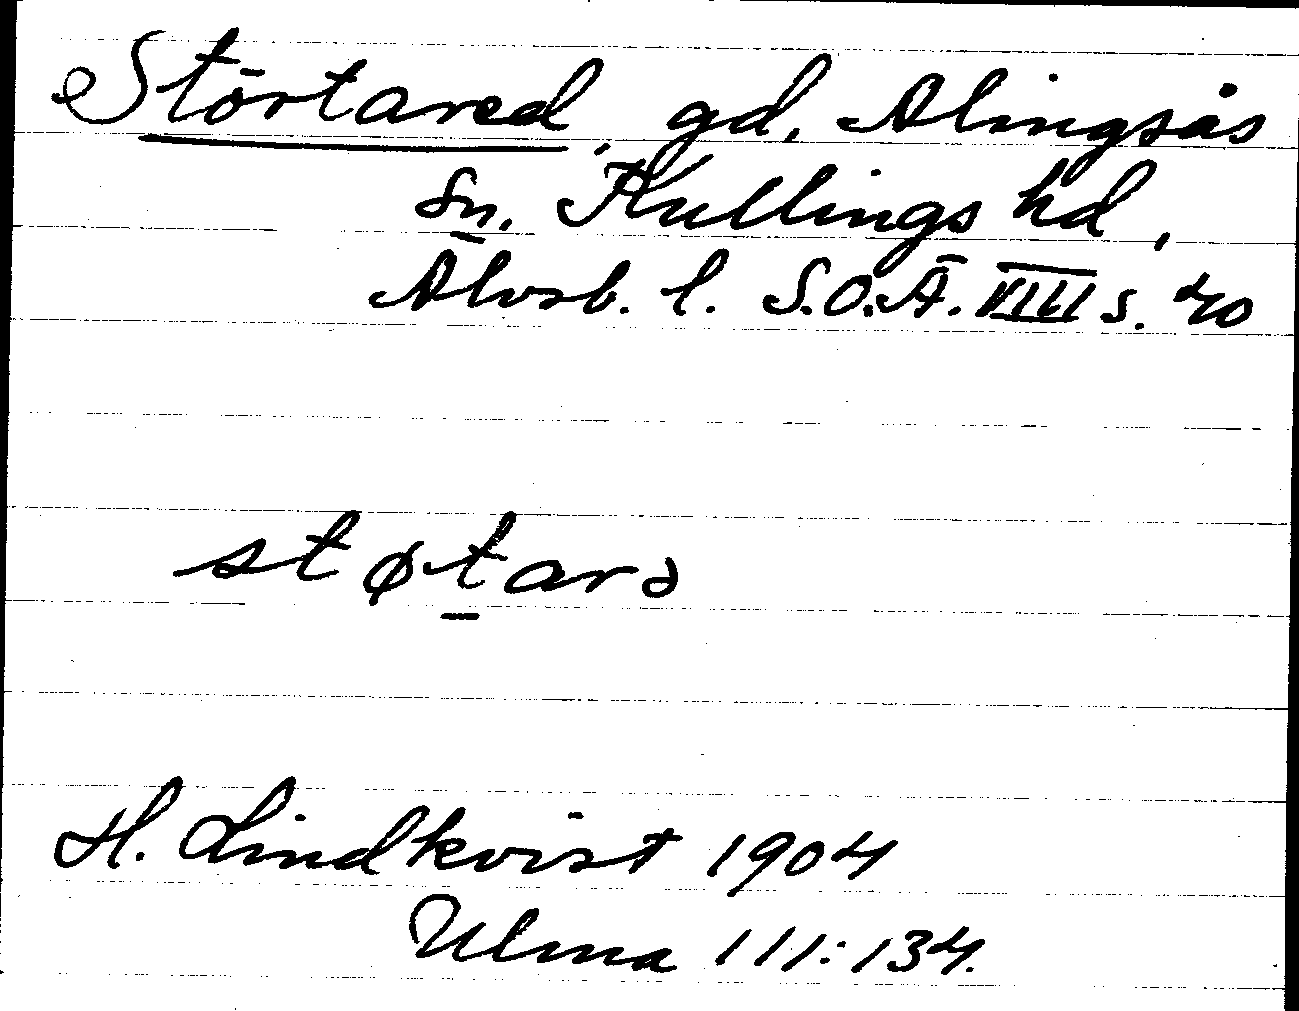 Störtared, gd, Alingsås
sn. Kullings hd,
Älvsb. l. S.O.Ä. VIII s. 40
støtarə
H. Lindkvist 1904
Ulma 111:134.